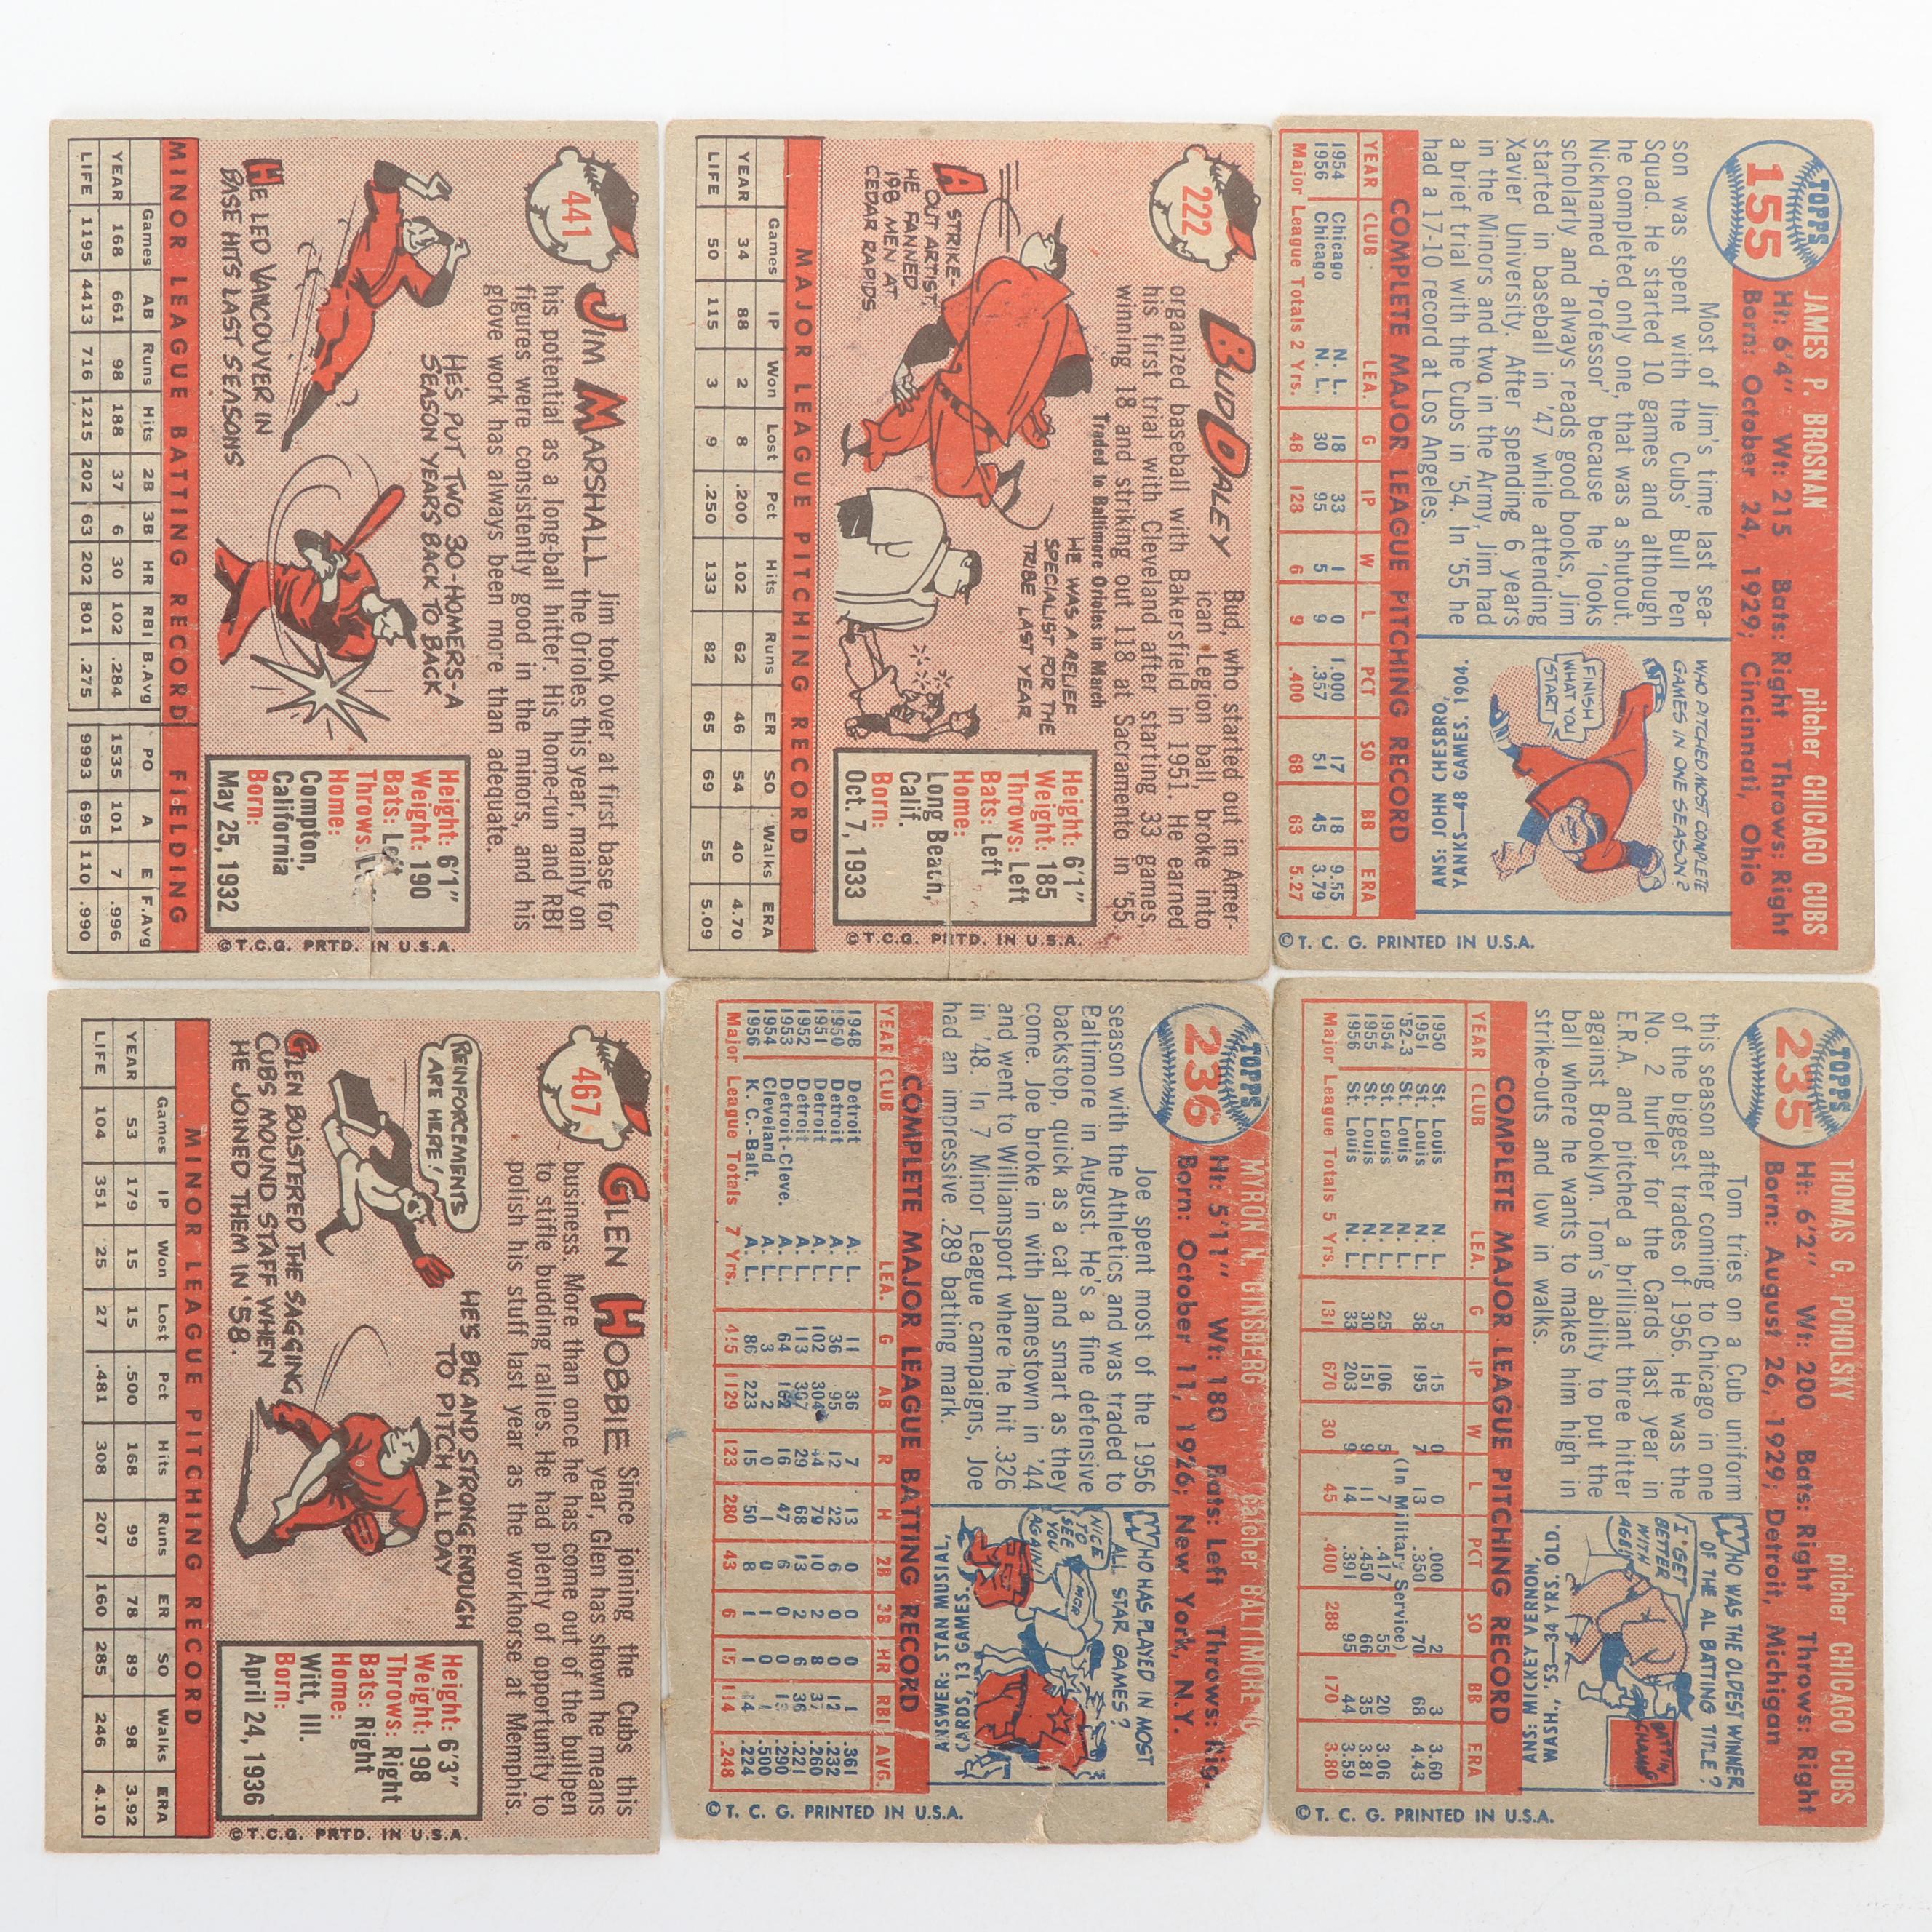 441
JIM MARSHALL
Jim took over at first base for
the Orioles this year, mainly on
his potential as a long-ball hitter. His home-run and RBI
figures were consistently good in the minors, and his
glove work has always been more than adequate.
HE'S PUT TWO 30-HOMERS-A
SEASON YEARS BACK TO BACK
HE LED VANCOUVER IN
BASE HITS LAST SEASONS
Height: 6'1"
Weight: 190
Bats: Left
Throws:
Home:
Compton,
California
Born:
May 25, 1932
MINOR LEAGUE BATTING RECORD FIELDING
Games AB Runs Hits 2B 3B HR RBI B.Avg PO A E F.Avg
YEAR 168 661 98 188 37 6 30 102 .284 1535 101 7 .996
LIFE 1195 4413 716 1215 202 63 202 801 .275 9993 695 110 .990
©T.C.G. PRTD. IN U.S.A.
222
BUD DALEY
Bud, who started out in Amer-
ican Legion ball, broke into
organized baseball with Bakersfield in 1951. He earned
his first trial with Cleveland after starting 33 games,
winning 18 and striking out 118 at Sacramento in '55.
Traded to Baltimore Orioles in March
A STRIKE-
OUT ARTIST,
HE FANNED
198 MEN AT
CEDAR RAPIDS
HE WAS A RELIEF
SPECIALIST FOR THE
TRIBE LAST YEAR
Height: 6'1"
Weight: 185
Throws: Left
Bats: Left
Home:
Long Beach,
Calif.
Born:
Oct. 7, 1933
MAJOR LEAGUE PITCHING RECORD
Games IP Won Lost Pct Hits Runs ER SO Walks ERA
YEAR 34 88 2 8 .200 102 62 46 54 40 4.70
LIFE 50 115 3 9 .250 133 82 65 69 55 5.09
©T.C.G. PRTD. IN U.S.A.
TOPPS
155
JAMES P. BROSNAN pitcher CHICAGO CUBS
Ht: 6'4" Wt: 215 Bats: Right Throws: Right
Born: October 24, 1929; Cincinnati, Ohio
Most of Jim's time last sea-
son was spent with the Cubs' Bull Pen
Squad. He started 10 games and although
he completed only one, that was a shutout.
Nicknamed 'Professor' because he 'looks
scholarly and always reads good books, Jim
started in baseball in '47 while attending
Xavier University. After spending 6 years
in the Minors and two in the Army, Jim had
a brief trial with the Cubs in '54. In '55 he
had a 17-10 record at Los Angeles.
WHO PITCHED MOST COMPLETE
GAMES IN ONE SEASON?
FINISH
WHAT YOU
START
ANS: JOHN CHESBRO,
YANKS—48 GAMES, 1904.
COMPLETE MAJOR LEAGUE PITCHING RECORD
YEAR CLUB LEA. G IP W L PCT SO BB ERA
1954 Chicago N. L. 18 33 1 0 1.000 17 18 9.55
1956 Chicago N. L. 30 95 5 9 .357 51 45 3.79
Major League Totals 2 Yrs. 48 128 6 9 .400 68 63 5.27
©T. C. G. PRINTED IN U.S.A.
467
GLEN HOBBIE
Since joining the Cubs this
year, Glen has shown he means
business. More than once he has come out of the bullpen
to stifle budding rallies. He had plenty of opportunity to
polish his stuff last year as the workhorse at Memphis.
REINFORCEMENTS
ARE HERE!
HE'S BIG AND STRONG ENOUGH
TO PITCH ALL DAY
GLEN BOLSTERED THE SAGGING
CUBS MOUND STAFF WHEN
HE JOINED THEM IN '58.
Height: 6'3"
Weight: 198
Throws: Right
Bats: Right
Home:
Witt, Ill.
Born:
April 24, 1936
MINOR LEAGUE PITCHING RECORD
Games IP Won Lost Pct Hits Runs ER SO Walks ERA
YEAR 53 179 15 15 .500 168 99 78 89 98 3.92
LIFE 104 351 25 27 .481 308 207 160 285 246 4.10
©T.C.G. PRTD. IN U.S.A.
TOPPS
236
MYRON N. GINSBERG catcher BALTIMORE
Ht: 5'11" Wt: 180 Bats: Left Throws:
Born: October 11, 1926; New York, N.Y.
Joe spent most of the 1956
season with the Athletics and was traded to
Baltimore in August. He's a fine defensive
backstop, quick as a cat and smart as they
come. Joe broke in with Jamestown in '44
and went to Williamsport where he hit .326
in '48. In 7 Minor League campaigns, Joe
had an impressive .289 batting mark.
WHO HAS PLAYED IN MOST
ALL STAR GAMES?
NICE
TO
SEE
YOU
AGAIN!
ANSWER: STAN MUSIAL,
CARDS, 13 GAMES.
COMPLETE MAJOR LEAGUE BATTING RECORD
YEAR CLUB LEA. G AB R H 2B 3B HR RBI AVG.
1948 Detroit A. L. 11 36 7 13 0 0 0 1 .361
1950 Detroit A. L. 36 95 12 22 6 0 0 12 .232
1951 Detroit A. L. 102 304 44 79 10 2 8 37 .260
1952 Detroit A. L. 113 307 29 68 13 2 6 36 .221
1953 Detroit-Cleve. A. L. 64 162 16 47 6 0 0 .290
1954 Cleveland A. L. 3 2 0 1 0 1 0 1 .500
1956 K. C.-Balt. A. L. 86 223 15 50 8 1 1 14 .224
Major League Totals 7 Yrs. 415 1129 123 280 43 6 15 114 .248
©T. C. G. PRINTED IN U.S.A.
TOPPS
235
THOMAS G. POHOLSKY pitcher CHICAGO CUBS
Ht: 6'2" Wt: 200 Bats: Right Throws: Right
Born: August 26, 1929; Detroit, Michigan
Tom tries on a Cub uniform
this season after coming to Chicago in one
of the biggest trades of 1956. He was the
No. 2 hurler for the Cards last year in
E.R.A. and pitched a brilliant three hitter
against Brooklyn. Tom's ability to put the
ball where he wants to makes him high in
strike-outs and low in walks.
WHO WAS THE OLDEST WINNER
OF THE AL BATTING TITLE?
I GET
BETTER
WITH
AGE!
BATTING
CHAMP
ANS: MICKEY VERNON,
WASH., '53—34 YRS. OLD.
COMPLETE MAJOR LEAGUE PITCHING RECORD
YEAR CLUB LEA. G IP W L PCT SO BB ERA
1950 St. Louis N. L. 5 15 0 0 .000 2 3 3.60
1951 St. Louis N. L. 38 195 7 13 .350 70 68 4.43
'52-3 St. Louis N. L. (In Military Service)
1954 St. Louis N. L. 25 106 5 7 .417 55 20 3.06
1955 St. Louis N. L. 30 151 9 11 .450 66 35 3.81
1956 St. Louis N. L. 33 203 9 14 .391 95 44 3.59
Major League Totals 5 Yrs. 131 670 30 45 .400 288 170 3.80
©T. C. G. PRINTED IN U.S.A.